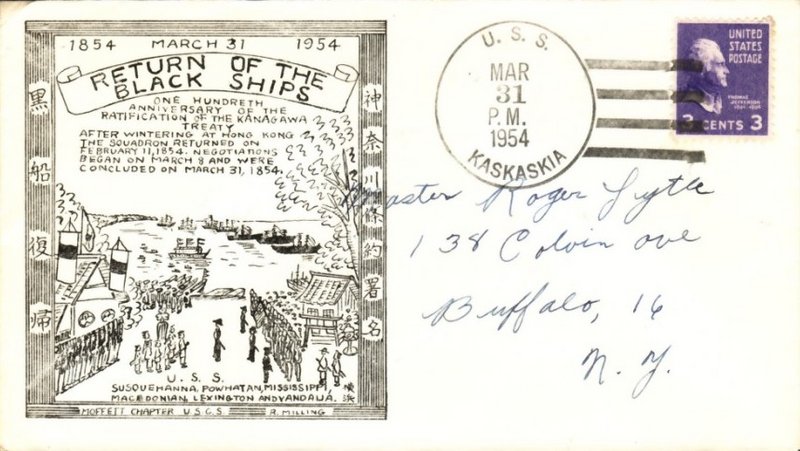 1854 MARCH 31 1954
RETURN OF THE
BLACK SHIPS
ONE HUNDRETH
ANNIVERSARY OF THE
RATIFICATION OF THE KANAGAWA
TREATY
AFTER WINTERING AT HONG KONG
THE SQUADRON RETURNED ON
FEBRUARY 11, 1854. NEGOTIATIONS
BEGAN ON MARCH 8 AND WERE
CONCLUDED ON MARCH 31, 1854.
黒船復帰
神奈川條約署名
U. S. S.
SUSQUEHANNA, POWHATAN, MISSISSIPPI,
MACEDONIAN, LEXINGTON AND VANDALIA.
MOFFETT CHAPTER U.S.C.S. R. MILLING
U. S. S.
MAR
31
P.M.
1954
KASKASKIA
UNITED
STATES
POSTAGE
THOMAS
JEFFERSON
3 CENTS 3
Master Roger Lytle
138 Colvin ave
Buffalo, 16
N. Y.